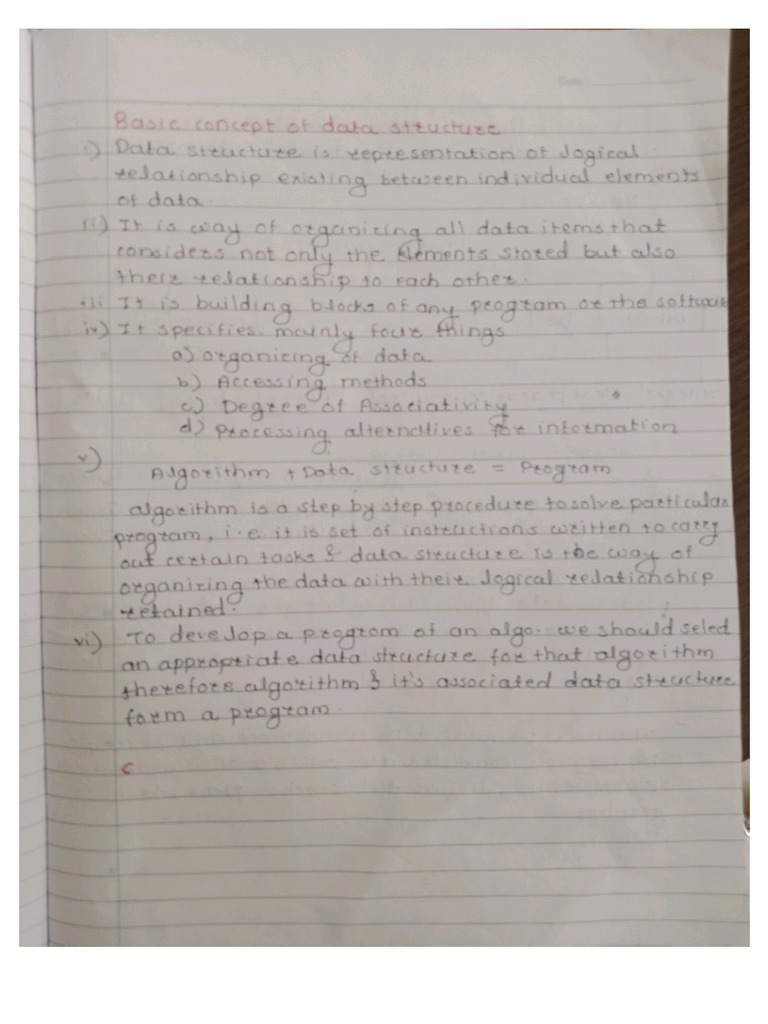 Date
Basic concept of data structure
i) Data structure is representation of logical
relationship existing between individual elements
of data.
ii) It is way of organizing all data items that
considers not only the elements stored but also
their relationship to each other.
iii It is building blocks of any program or the software
iv) It specifies mainly four things
a) organizing of data
b) Accessing methods
c) Degree of Associativity
d) Processing alternatives for information
v)
Algorithm + Data structure = Program
algorithm is a step by step procedure to solve particular
program, i.e it is set of instructions written to carry
out certain tasks & data structure is the way of
organizing the data with their logical relationship
retained.
vi) To develop a program of an algo. we should seled
an appropriate data structure for that algorithm
therefore algorithm & it's associated data structure
form a program.
c